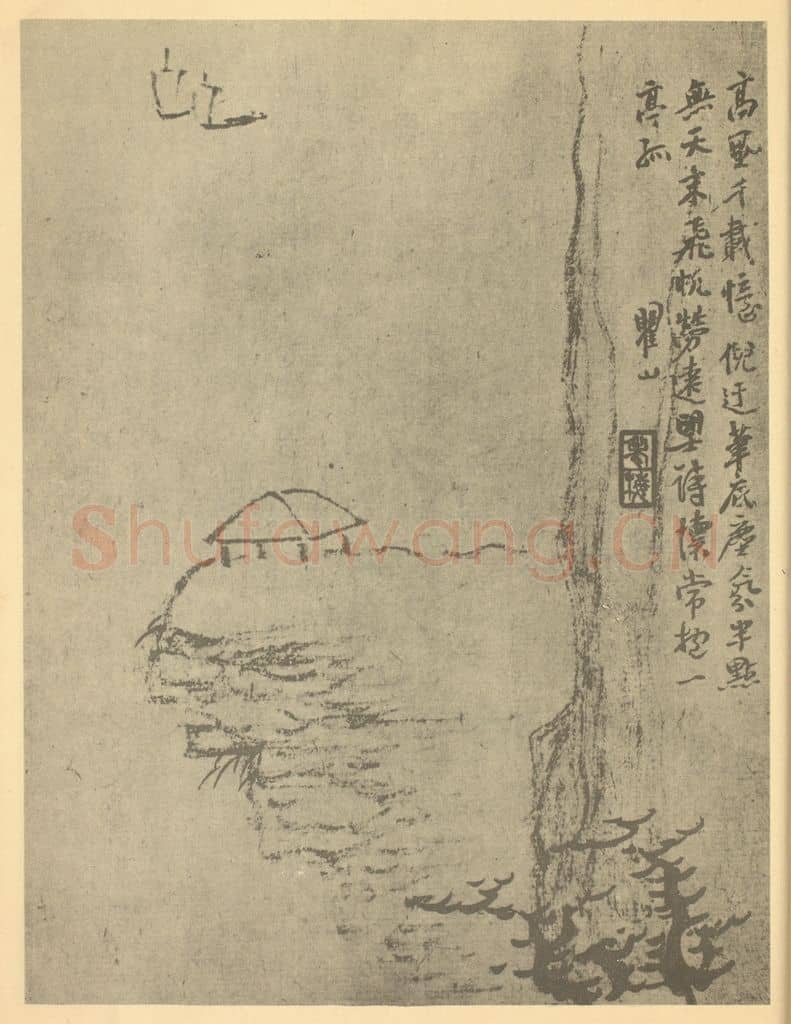 高風千載憶倪迂筆底塵氛半點
無天末飛帆勞遠望詩懷常抱一
亭孤
瞿山
Shufawang.CN